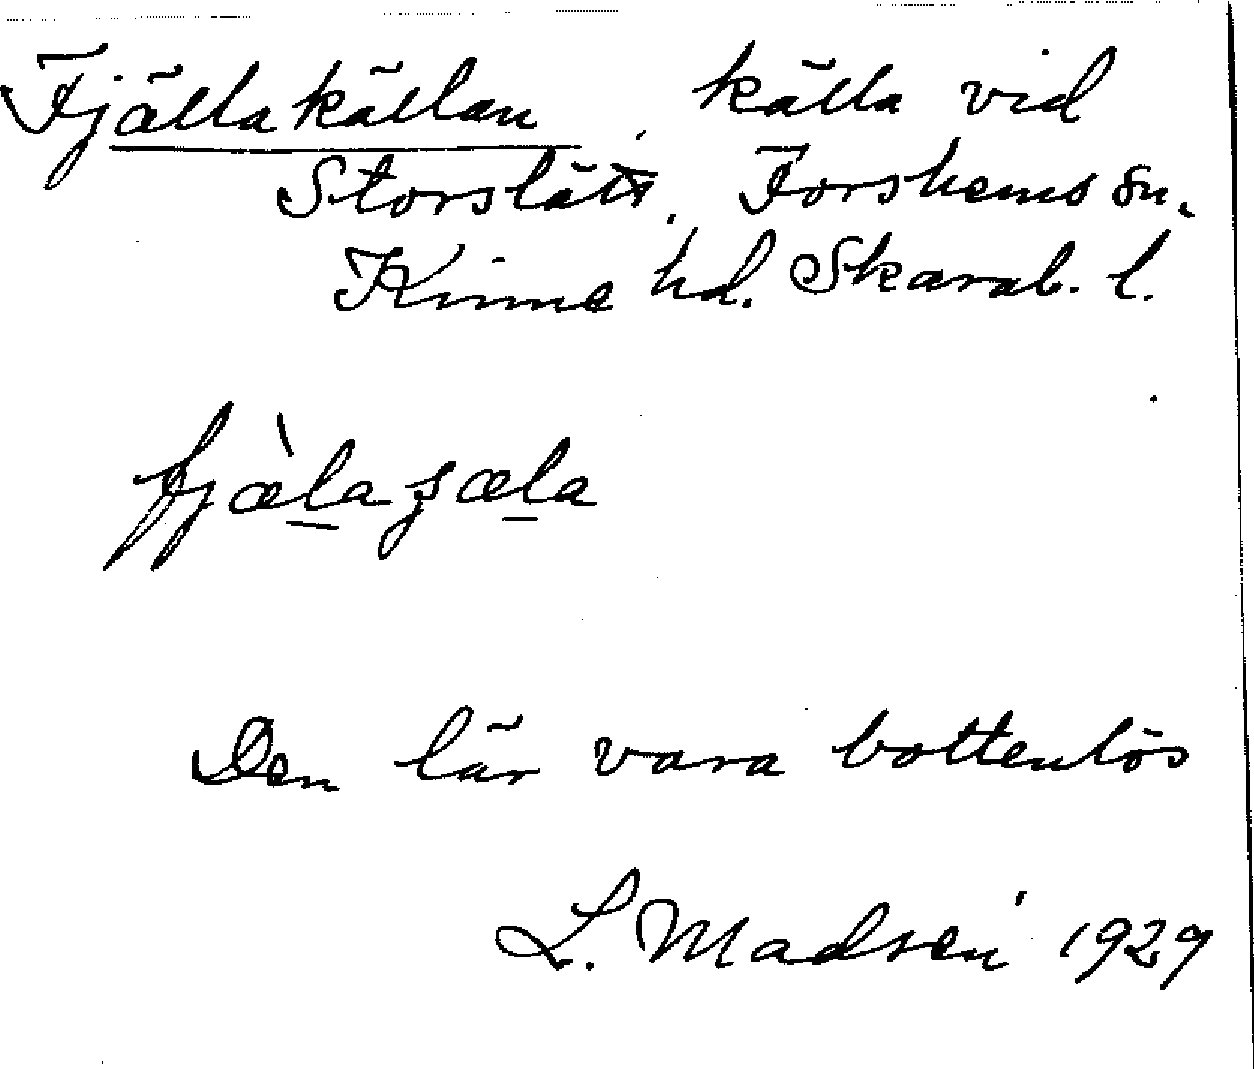 Fjällakällan, källa vid
Storslätt, Forshems sn.
Kinne hd. Skarab. l.
fjæ̀la ʂæla
Den lär vara bottenlös
L. Madsén 1929